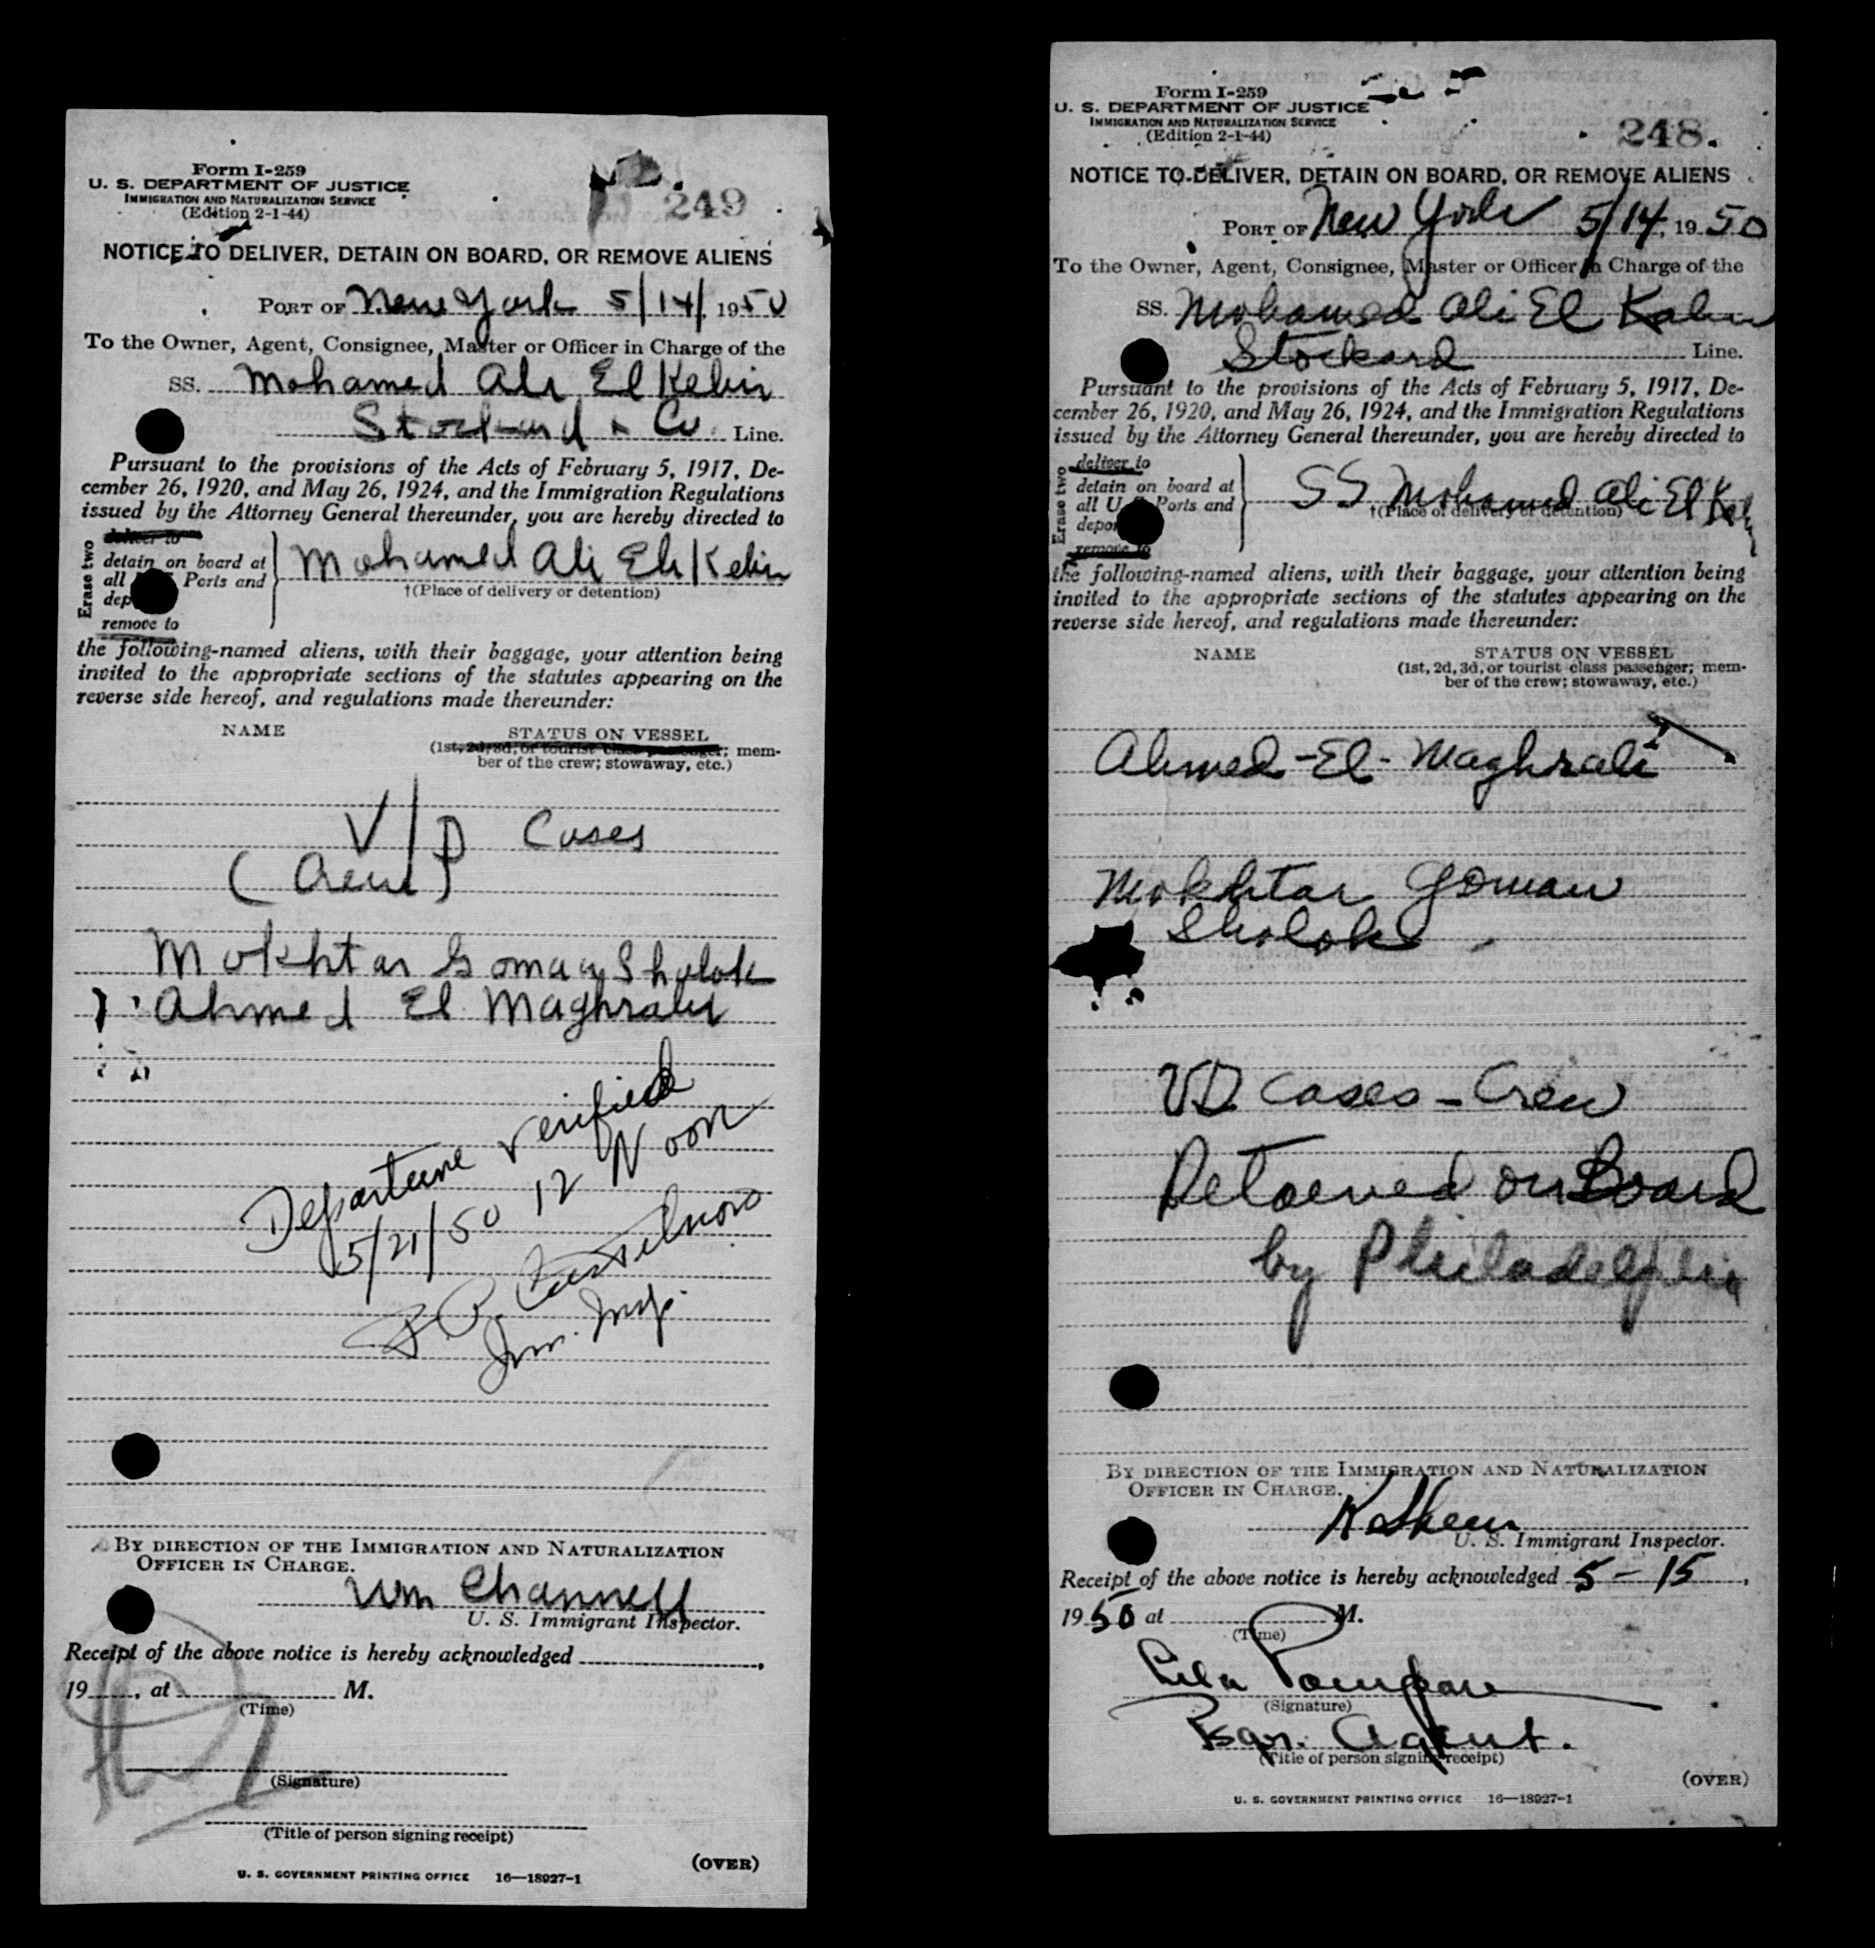 Form I-259
U. S. DEPARTMENT OF JUSTICE
IMMIGRATION AND NATURALIZATION SERVICE
(Edition 2-1-44)
249
NOTICE TO DELIVER, DETAIN ON BOARD, OR REMOVE ALIENS
PORT OF New York 5/14/, 1950
To the Owner, Agent, Consignee, Master or Officer in Charge of the
SS. Mohamed Ali El Kebir
Stockard & Co. Line.
Pursuant to the provisions of the Acts of February 5, 1917, De-
cember 26, 1920, and May 26, 1924, and the Immigration Regulations
issued by the Attorney General thereunder, you are hereby directed to
Erase two
deliver to
detain on board at
all Ports and
dep
remove to
Mohamed Ali El Kebir
†(Place of delivery or detention)
the following-named aliens, with their baggage, your attention being
invited to the appropriate sections of the statutes appearing on the
reverse side hereof, and regulations made thereunder:
NAME STATUS ON VESSEL
(1st, 2d, 3d, or tourist class passenger; mem-
ber of the crew; stowaway, etc.)
V/D Cases
(Crew)
Mokhtar Gomaa Sholok
Ahmed El Maghrabi
Departure verified
5/21/50 12 Noon
Imm. Insp.
BY DIRECTION OF THE IMMIGRATION AND NATURALIZATION
OFFICER IN CHARGE.
Wm Channell
U. S. Immigrant Inspector.
Receipt of the above notice is hereby acknowledged ,
19 , at M.
(Time)
(Signature)
(Title of person signing receipt)
(OVER)
U. S. GOVERNMENT PRINTING OFFICE 16—18927-1
Form I-259
U. S. DEPARTMENT OF JUSTICE
IMMIGRATION AND NATURALIZATION SERVICE
(Edition 2-1-44)
248.
NOTICE TO DELIVER, DETAIN ON BOARD, OR REMOVE ALIENS
PORT OF New York 5/14, 1950
To the Owner, Agent, Consignee, Master or Officer in Charge of the
SS. Mohamed Ali El Kabir
Stockard Line.
Pursuant to the provisions of the Acts of February 5, 1917, De-
cember 26, 1920, and May 26, 1924, and the Immigration Regulations
issued by the Attorney General thereunder, you are hereby directed to
Erase two
deliver to
detain on board at
all U Ports and
depor
remove to
SS Mohamed Ali El Kabir
†(Place of delivery or detention)
the following-named aliens, with their baggage, your attention being
invited to the appropriate sections of the statutes appearing on the
reverse side hereof, and regulations made thereunder:
NAME STATUS ON VESSEL
(1st, 2d, 3d, or tourist class passenger; mem-
ber of the crew; stowaway, etc.)
Ahmed-El-Maghrabi
Mokhtar Gomaa
Sholok
VD cases - Crew
Detained on Board
by Philadelphia
BY DIRECTION OF THE IMMIGRATION AND NATURALIZATION
OFFICER IN CHARGE.
U. S. Immigrant Inspector.
Receipt of the above notice is hereby acknowledged 5-15,
1950 at M.
(Time)
(Signature)
Psgr. Agent.
(Title of person signing receipt)
(OVER)
U. S. GOVERNMENT PRINTING OFFICE 16—18927-1